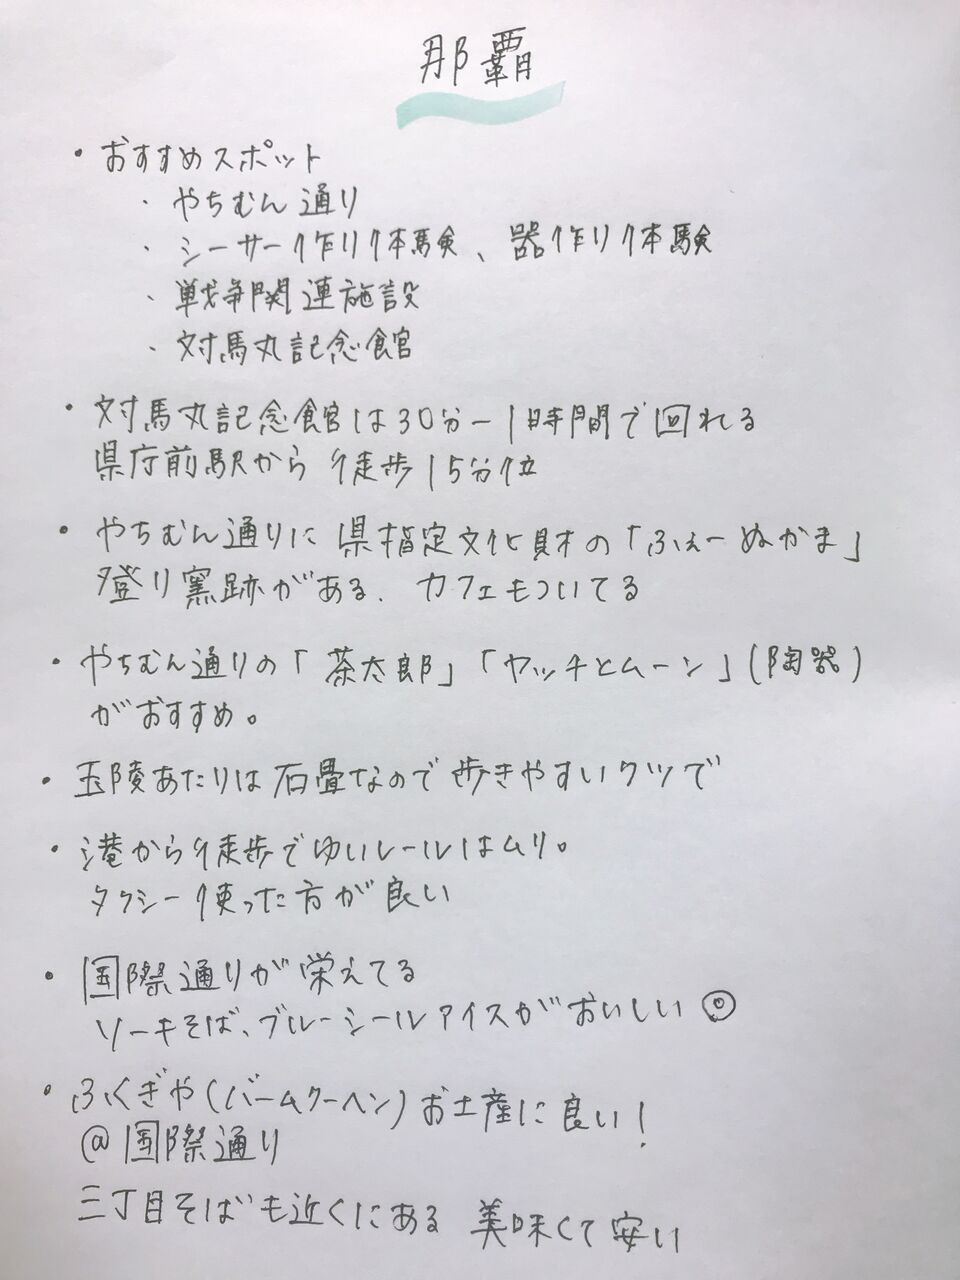 那覇
・おすすめスポット
・やちむん通り
・シーサー作り体験、器作り体験
・戦争関連施設
・対馬丸記念館
・対馬丸記念館は30分ー1時間で回れる
県庁前駅から徒歩15分位
・やちむん通りに県指定文化財の「ふぇーぬかま」
登り窯跡がある、カフェもついてる
・やちむん通りの「茶太郎」「ヤッチとムーン」(陶器)
がおすすめ。
・玉陵あたりは石畳なので歩きやすいクツで
・港から徒歩でゆいレールはムリ。
タクシー使った方が良い
・国際通りが栄えてる
ソーキそば、ブルーシールアイスがおいしい◎
・ふくぎや(バームクーヘン)お土産に良い!
@国際通り
三丁目そばも近くにある 美味くて安い